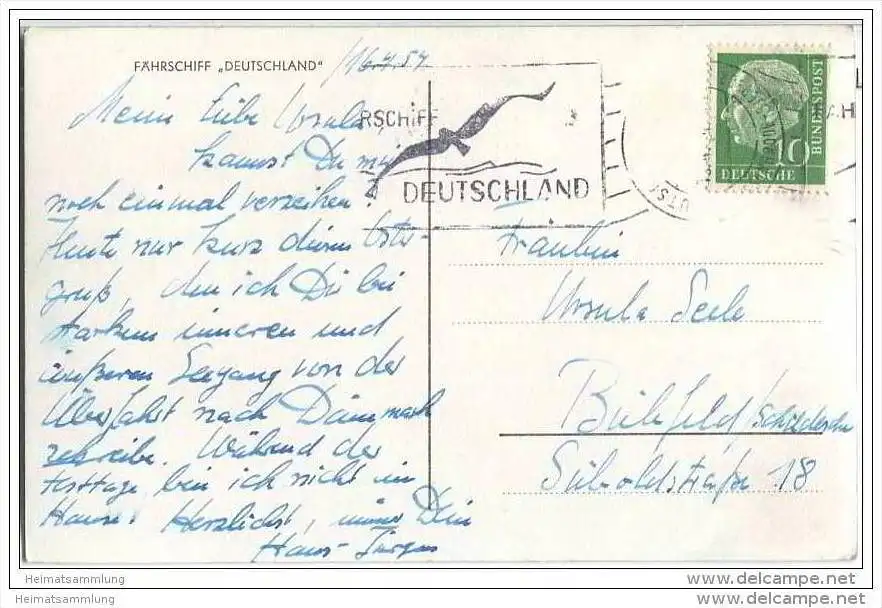 FÄHRSCHIFF „DEUTSCHLAND“
Meine liebe Ursula,
kannst Du mir
noch einmal verzeihen?
Heute nur kurz diesen Oster-
gruß, den ich Dir bei
starkem inneren und
äußeren Seegang von der
Überfahrt nach Dänemark
schreibe. Während der
Festtage bin ich nicht im
Hause. Herzlichst, immer Dein
Hans-Jürgen
RSCHIFF
DEUTSCHLAND
10
BUNDESPOST
DEUTSCHE
Fräulein
Ursula Seele
Bielefeld/Schildesche
Sieboldstraße 18
Heimatsammlung
Heimatsammlung
www.delcampe.net
www.delcampe.net